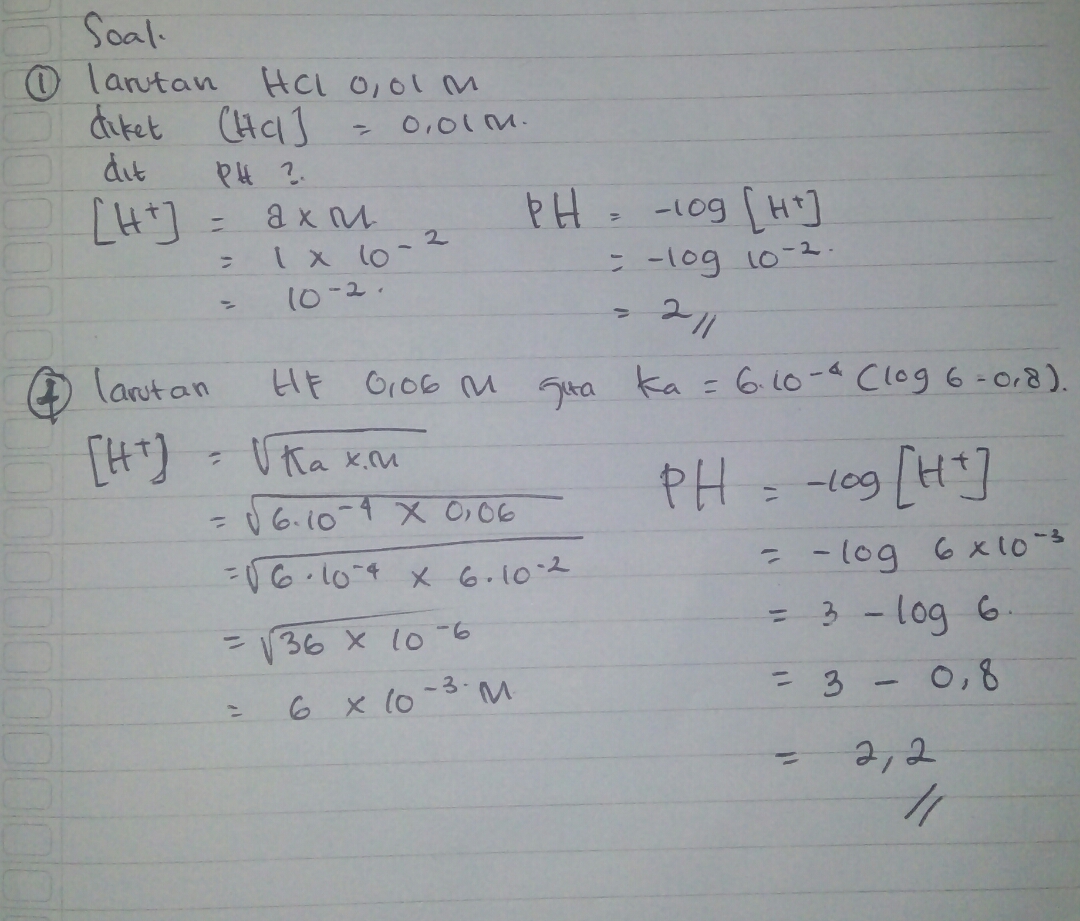 Soal.
① larutan HCl 0,01 M
diket [HCl] = 0,01 M.
dit PH ?.
[H⁺] = a x M
= 1 x 10⁻²
= 10⁻².
PH = -log [H⁺]
= -log 10⁻².
= 2 //
② larutan HF 0,06 M jika Ka = 6.10⁻⁴ (log 6 = 0,8).
[H⁺] = √Ka x M
= √6.10⁻⁴ x 0,06
= √6.10⁻⁴ x 6.10⁻²
= √36 x 10⁻⁶
= 6 x 10⁻³ M
PH = -log [H⁺]
= -log 6 x 10⁻³
= 3 - log 6.
= 3 - 0,8
= 2,2
//